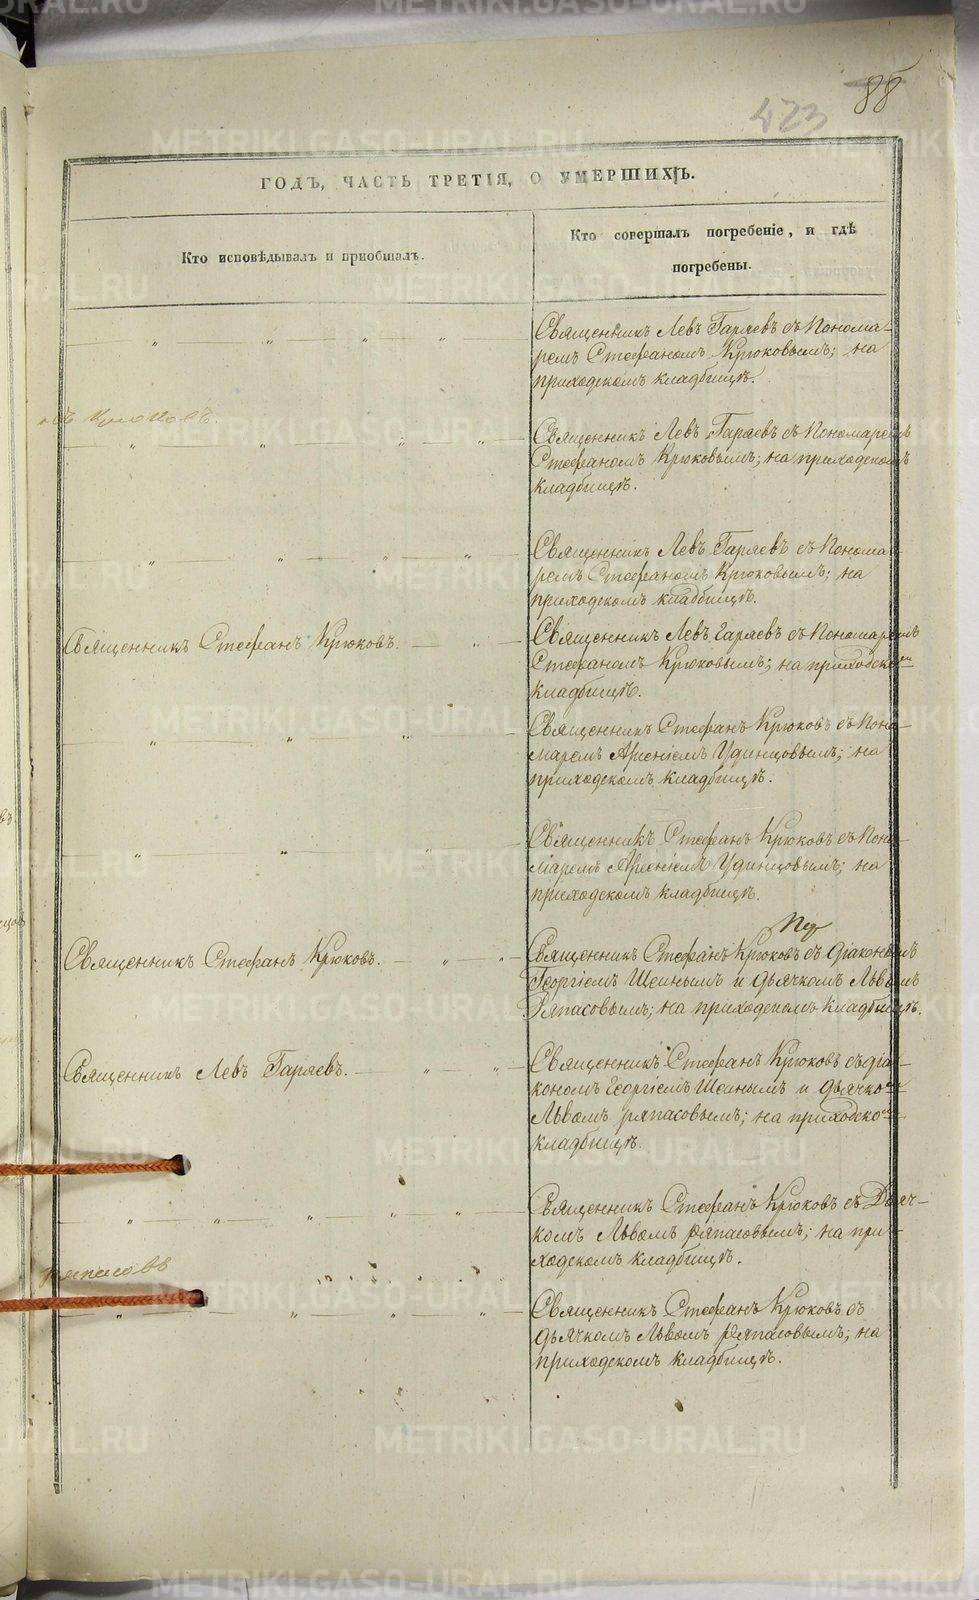 METRIKI.GASO-URAL.RU
88
423
ГОДЪ, ЧАСТЬ ТРЕТІЯ, О УМЕРШИХЪ.
Кто исповѣдывалъ и пріобщалъ.
Кто совершалъ погребеніе, и гдѣ
погребены.
Священникъ Левъ Гаряевъ съ Понома-
ремъ Стефаномъ Крюковымъ; на
приходскомъ кладбищѣ.
Священникъ Левъ Гаряевъ съ Пономаремъ
Стефаномъ Крюковымъ; на приходскомъ
кладбищѣ.
Священникъ Левъ Гаряевъ съ Понома-
ремъ Стефаномъ Крюковымъ; на
приходскомъ кладбищѣ.
Священникъ Стефанъ Крюковъ.
Священникъ Левъ Гаряевъ съ Пономаремъ
Стефаномъ Крюковымъ; на приходском
кладбищѣ.
Священникъ Стефанъ Крюковъ съ Поно-
маремъ Арсеніемъ Удинцовымъ; на
приходскомъ кладбищѣ.
Священникъ Стефанъ Крюковъ съ Поно-
маремъ Арсеніемъ Удинцовымъ; на
приходскомъ кладбищѣ.
Священникъ Стефанъ Крюковъ.
Священникъ Стефанъ Крюковъ съ діакономъ
Георгіемъ Шеинымъ и дьячкомъ Львомъ
Ряпасовымъ; на приходскомъ кладбищѣ.
Священникъ Левъ Гаряевъ.
Священникъ Стефанъ Крюковъ съ діа-
кономъ Георгіемъ Шеинымъ и дьячко-
Львомъ ряпасовымъ; на приходско-
кладбищѣ.
Священникъ Стефанъ Крюковъ съ Дьяч-
комъ Львомъ ряпасовымъ; на при-
ходскомъ кладбищѣ.
Священникъ Стефанъ Крюковъ съ
дьячкомъ Львомъ Ряпасовымъ; на
приходскомъ кладбищѣ.